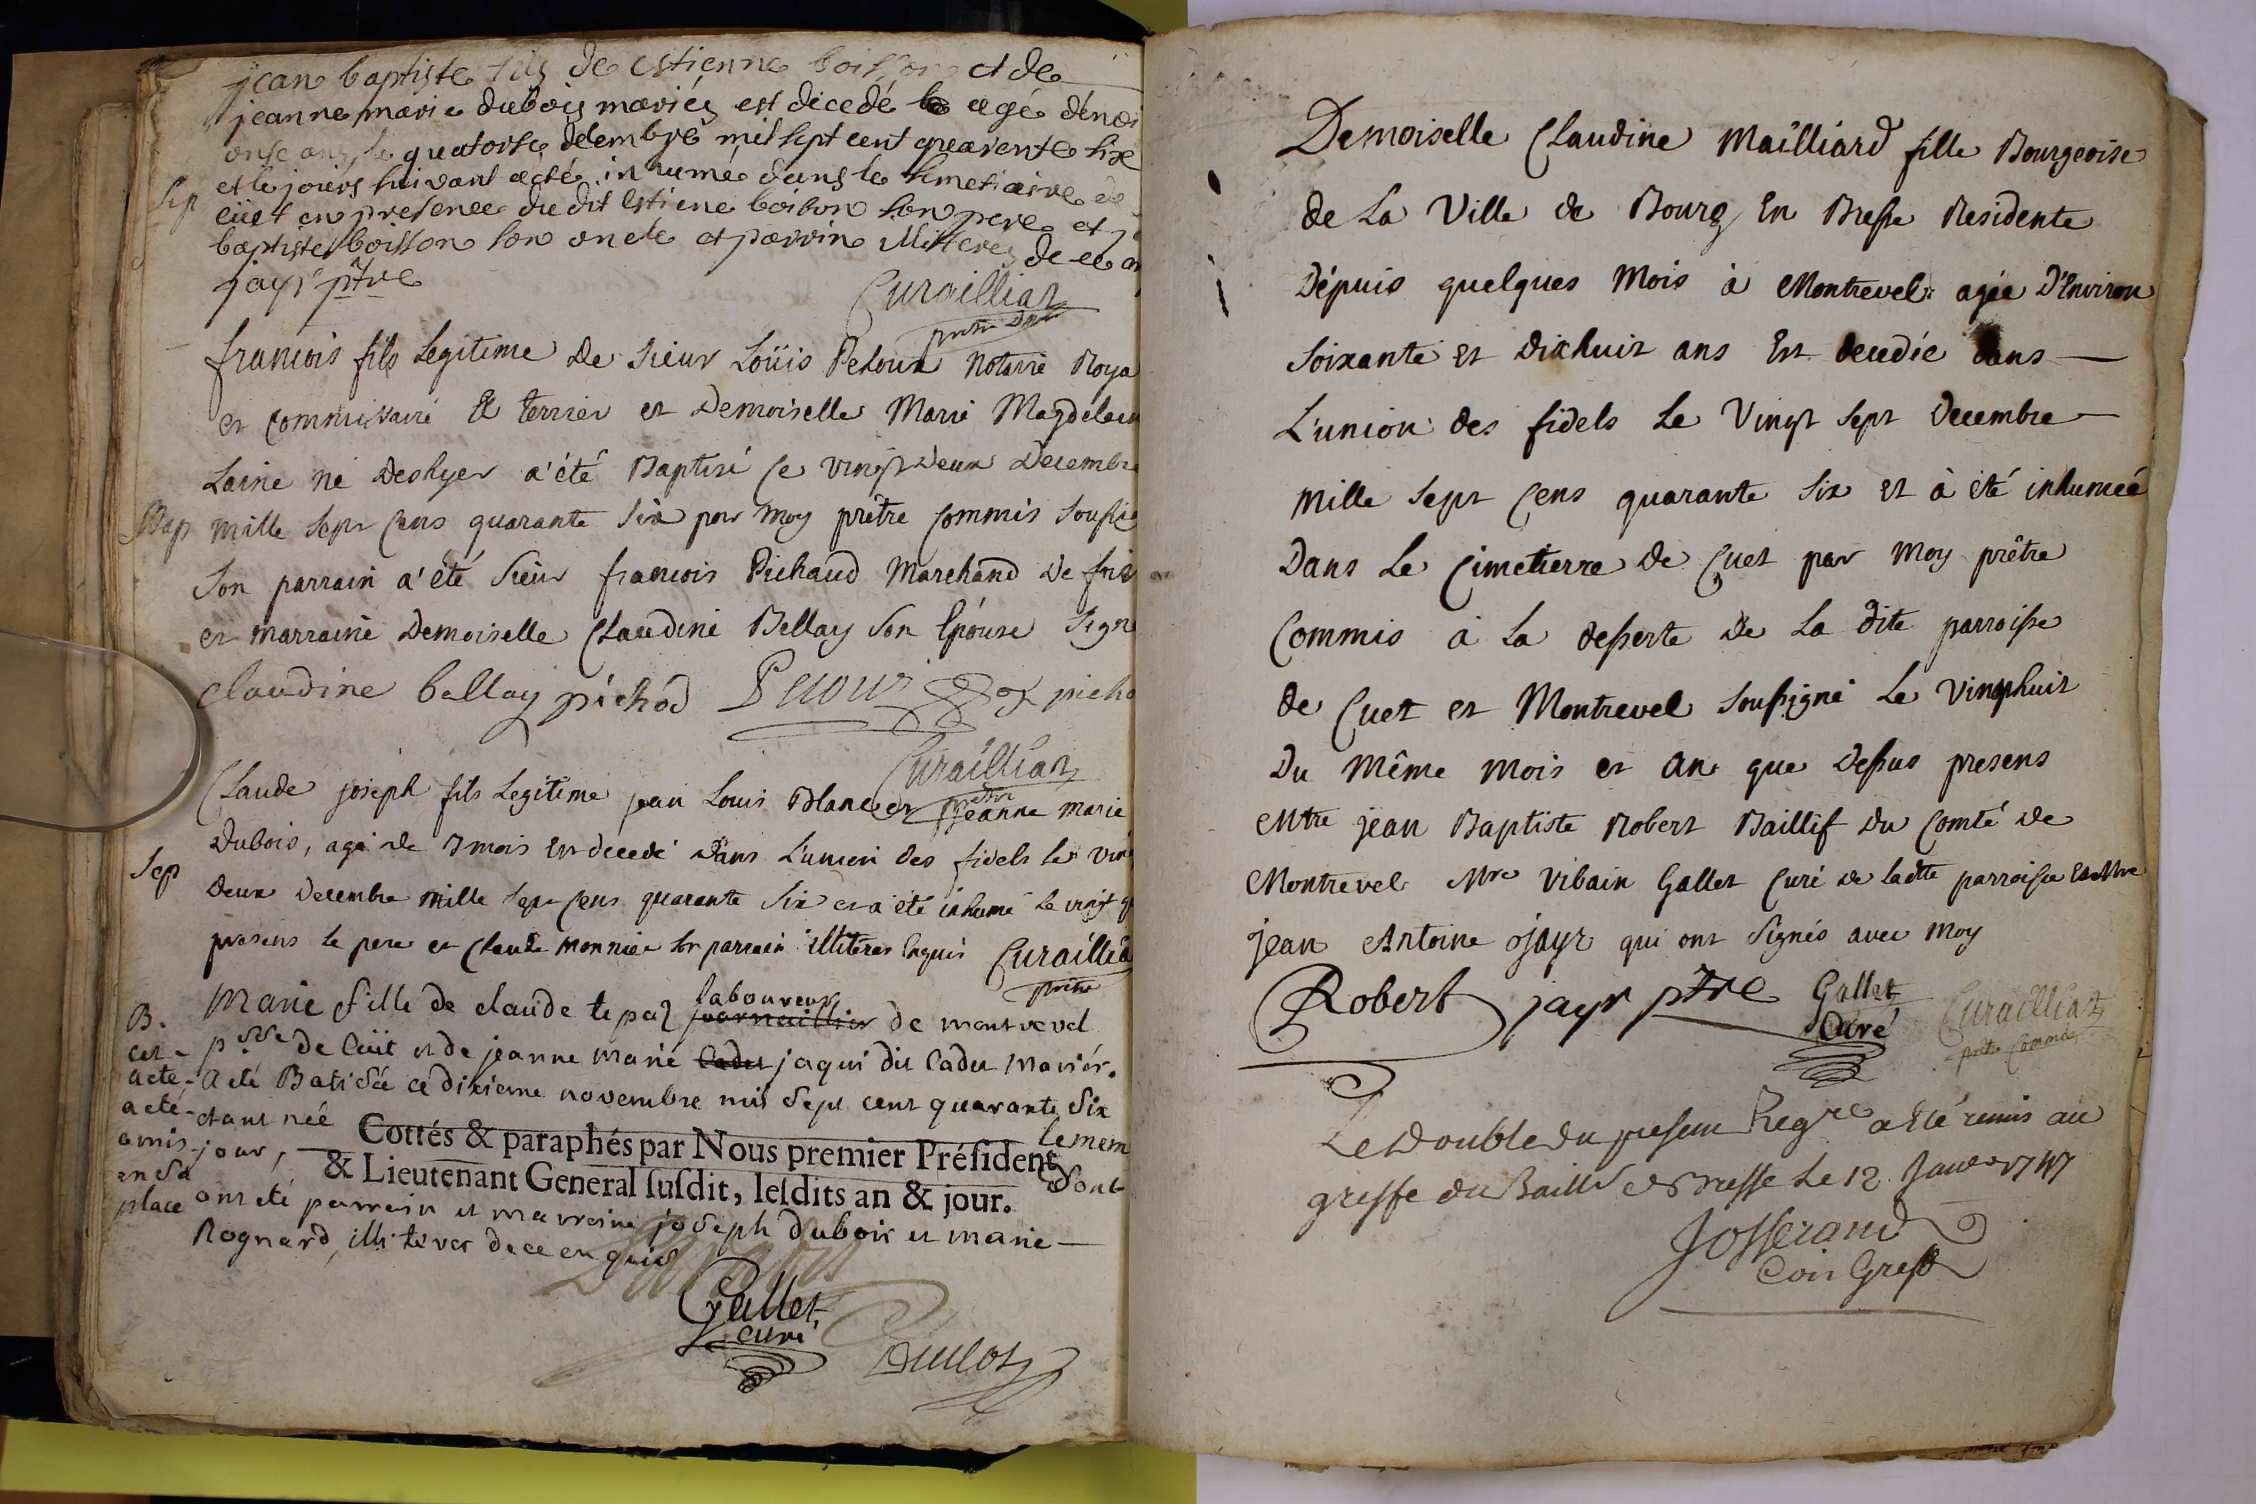 jean baptiste fils de estienne boisson et de
jeanne marie dubois mariés est decedé agé d'
onse ans le quatorse decembre mil sept cent quarente six
et le jours suivant a été inhumé dans le simetiaire de
Sep
cüet en presence du dit estiene boison son pere et
baptiste boisson son oncle et parrin illiteres de ce
jayr ptre
Curaillian
francois fils Legitime de sieur Loüis Peloux Notaire Roya
et commissaire terrier et Demoiselle Marie Magdelain
Laine né a été Baptisé Ce vingt deux Decembre
Bap
mille sept Cens quarante six par moy prêtre Commis soussig
son parrain a'été sieur francois Pichaud Marchand De
et marraine Demoiselle Claudine Bellay son Epouse signe
claudine bellay pichod picho
Curaillian
Claude joseph fils Legitime jean Louis Blanc et jeanne marie
Dubois, agé de 7 mois Est decedé dans L'union des fidels le vin
Sep
deux Decembre mille sept Cens quarante Six et a été inhumé le vingt
presens le pere et Claude Monnier son parrain illiteres Enquis Curaillia
prêtre
B.
cet
acte
a eté
omis
en Sa
place
Marie fille de claude tepaz laboureur journaillier de montrevel
psse de Cüet et de jeanne marie Cadet jaqui dit Cadet Mariés.
A eté Batisée ce dixieme novembre mil Sept cent quarante Six
etant née le mem
jour,
Cottés & paraphés par Nous premier Président
& Lieutenant General susdit, lesdits an & jour.
dont
ont eté parrain et marraine joseph dubois et marie
Rognard, illiteres de ce enquis
Gallet
curé
Demoiselle Claudine Mailliard fille Bourgeoise
de La Ville de Bourg En Bresse Residente
Dépuis quelques Mois à Montrevel agée D'Environ
Soixante et Dixhuit ans Est decedée dans
L'union des fidels Le Vingt Sept Decembre
Mille Sept Cens quarante Six et à été inhumeé
Dans Le Cimetierre De Cuet par Moy prêtre
Commis à La desserte De La dite parroisse
de Cuet et Montrevel Soussigné Le Vingthuit
Du Même Mois et An que Dessus presens
Mtre jean Baptiste Robert Baillif Du Comté De
Montrevel Mre Vibain Gallet Curé de ladtte parroisse Et Mre
jean Antoine jayr qui ont Signés avec Moy
Robert jayr ptre Gallet
Curé
Curaillian
prêtre Commis
Le Double du present Regre a Eté remis au
greffe du Baill de Bresse Le 12 Janer 1747
Josserand
Com Greff